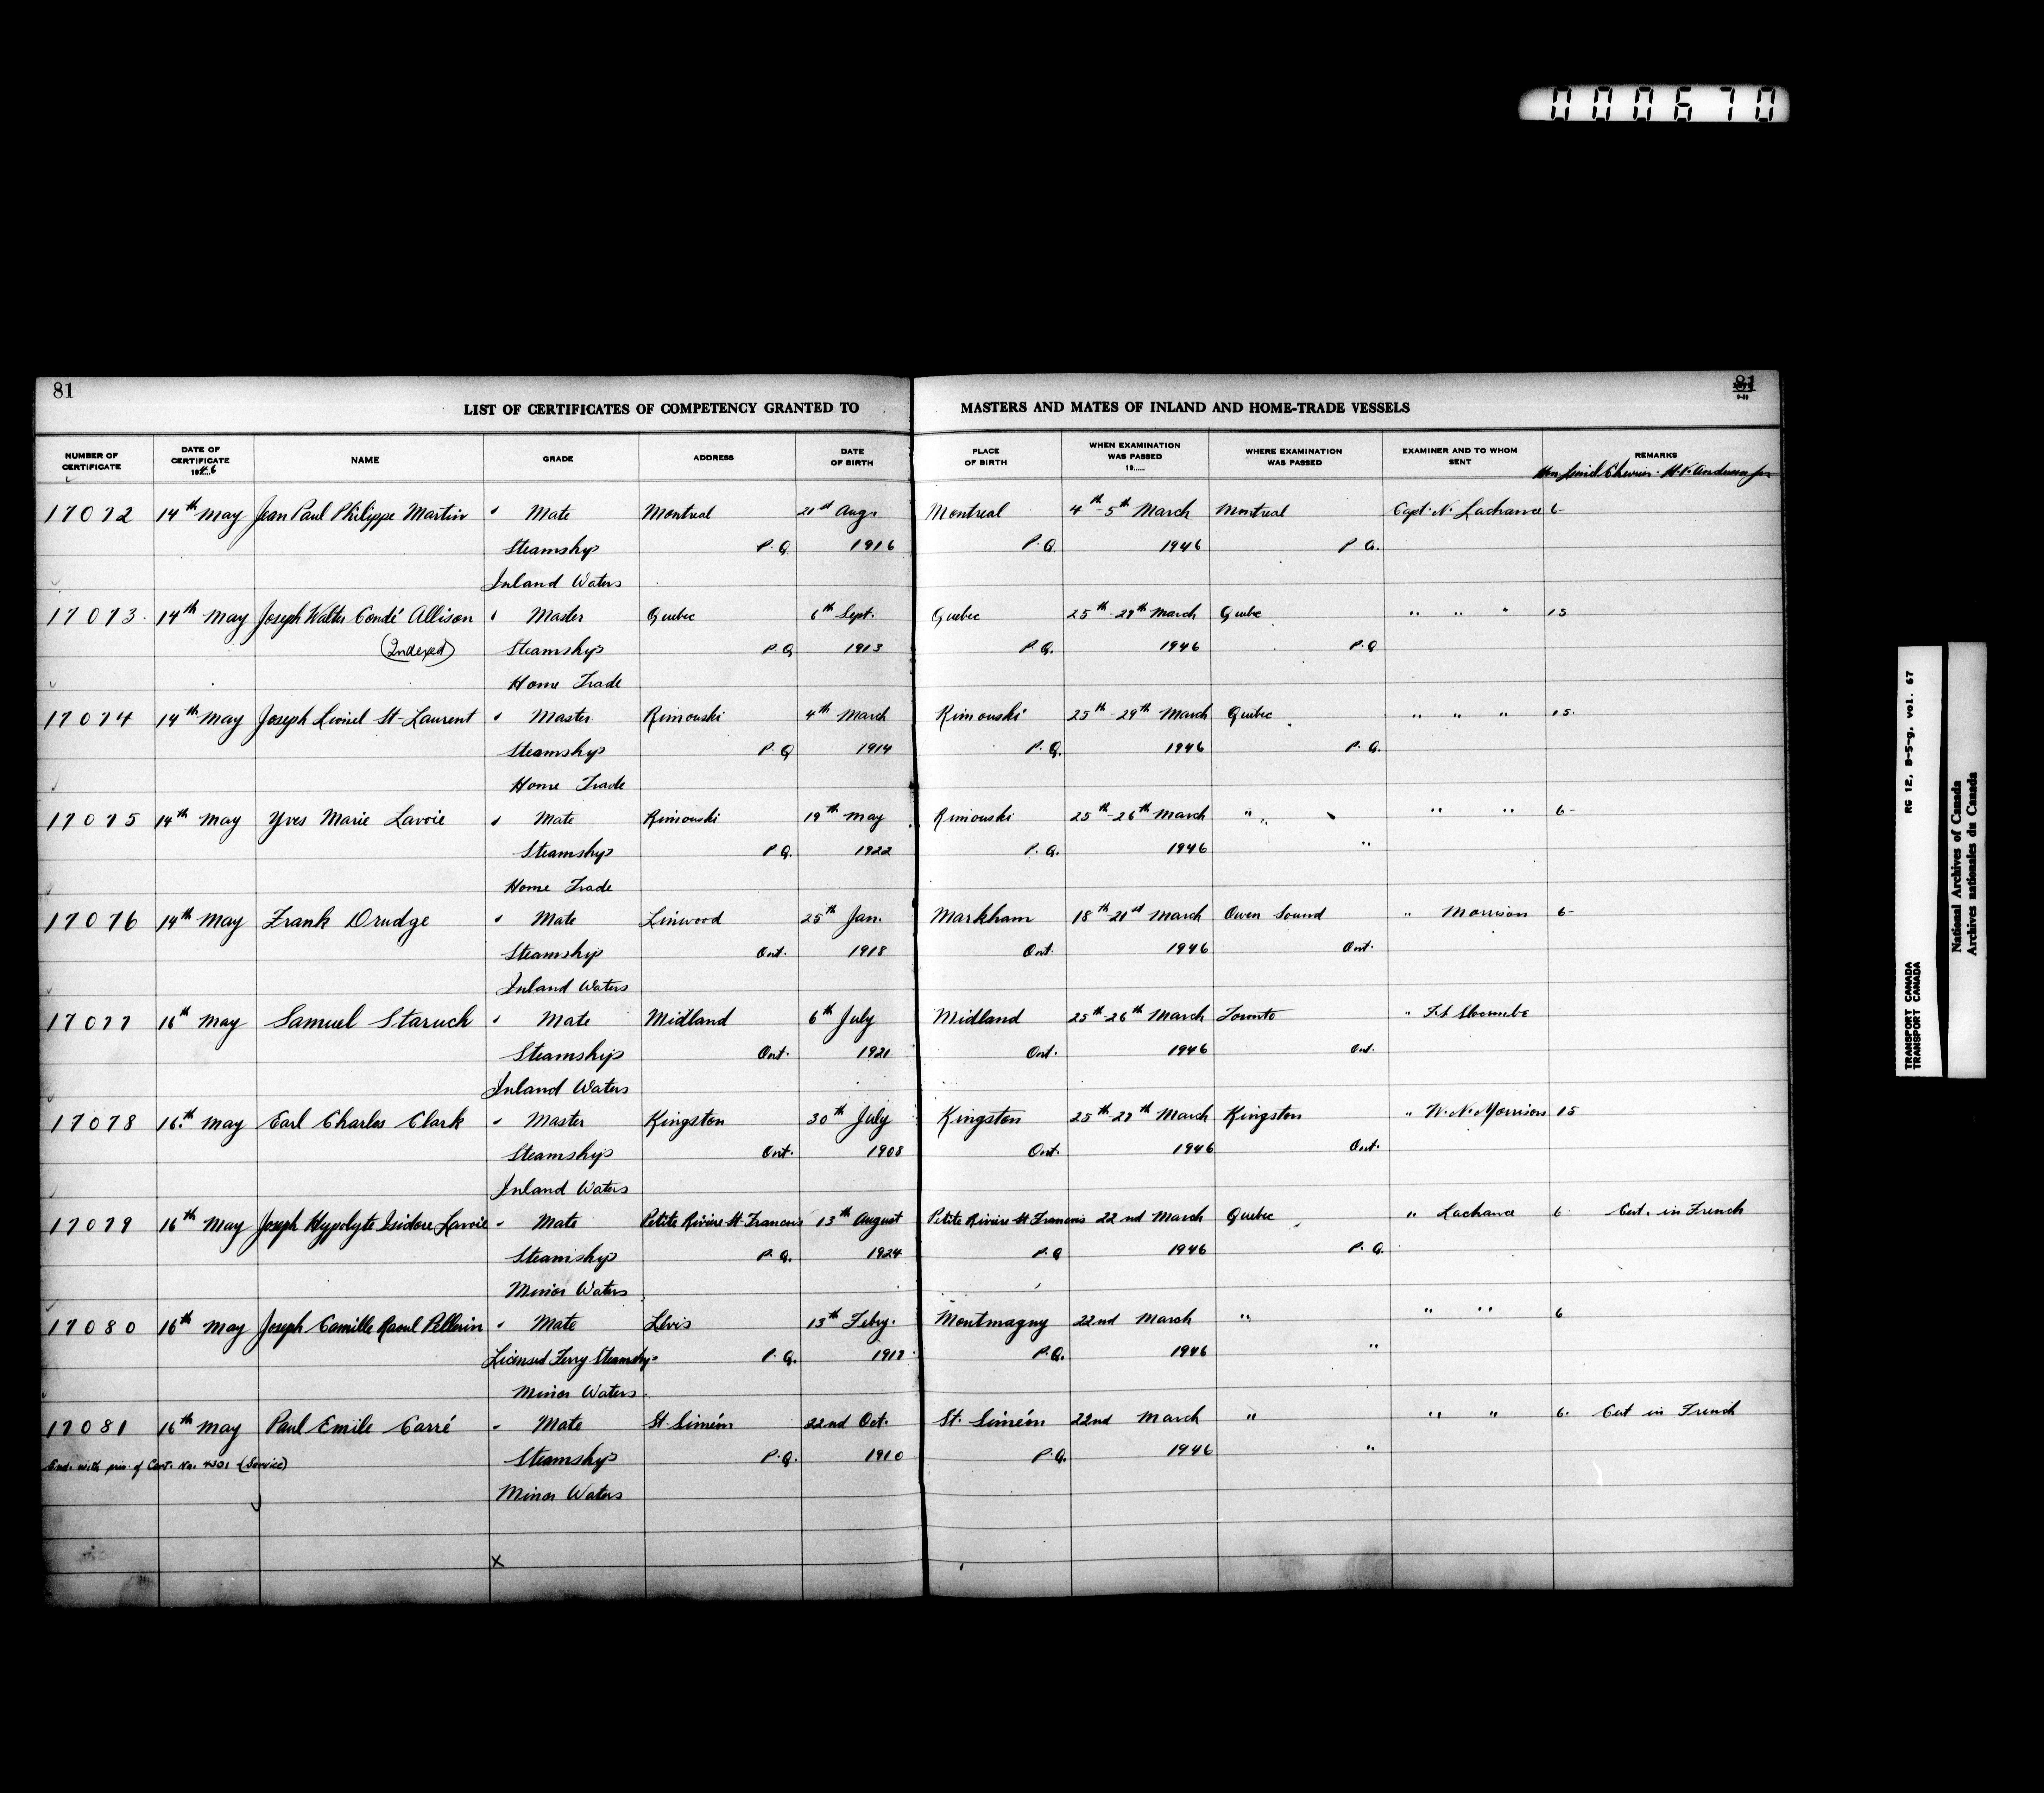 000670
81
81
LIST OF CERTIFICATES OF COMPETENCY GRANTED TO MASTERS AND MATES OF INLAND AND HOME-TRADE VESSELS
NUMBER OF CERTIFICATE DATE OF CERTIFICATE 1946 NAME GRADE ADDRESS DATE OF BIRTH PLACE OF BIRTH WHEN EXAMINATION WAS PASSED 19..... WHERE EXAMINATION WAS PASSED EXAMINER AND TO WHOM SENT REMARKS
Hon. Lionel Chevrier
17072 14th May Jean Paul Philippe Martin Mate Montreal 21st Aug. Montreal 4th-5th March Montreal Capt. N. Lachance 6-
Steamship P.Q. 1916 P.Q. 1946 P.Q.
Inland Waters
17073. 14th May Joseph Walter Condé Allison Master Quebec 6th Sept. Quebec 25th-29th March Quebec " " " 15
(Indexed) Steamship P.Q. 1913 P.Q. 1946 P.Q.
Home Trade
17074 14th May Joseph Lionel St-Laurent Master Rimouski 4th March Rimouski 25th-29th March Quebec " " " 15.
Steamship P.Q. 1914 P.Q. 1946 P.Q.
Home Trade
17075 14th May Yves Marie Lavoie Mate Rimouski 19th May Rimouski 25th-26th March " " " 6-
Steamship P.Q. 1922 P.Q. 1946 "
Home Trade
17076 14th May Frank Drudge Mate Linwood 25th Jan. Markham 18th-21st March Owen Sound " Morrison 6-
Steamship Ont. 1918 Ont. 1946 Ont.
Inland Waters
17077 16th May Samuel Staruch Mate Midland 6th July Midland 25th-26th March Toronto " Slocombe
Steamship Ont. 1921 Ont. 1946 Ont.
Inland Waters
17078 16th May Earl Charles Clark Master Kingston 30th July Kingston 25th-27th March Kingston " W. N. Morrison 15
Steamship Ont. 1908 Ont. 1946 Ont.
Inland Waters
17079 16th May Joseph Hypolyte Isidore Lavoie Mate Petite Riviere St-Francois 13th August Petite Riviere St Francois 22nd March Quebec " Lachance 6. Cert. in French
Steamship P.Q. 1924 P.Q. 1946 P.Q.
Minor Waters
17080 16th May Joseph Camille Raoul Pellerin Mate Lévis 13th Feby. Montmagny 22nd March " " " 6
Licensed Ferry Steamship P.Q. 1917 P.Q. 1946 "
Minor Waters
17081 16th May Paul Emile Carré Mate St-Siméon 22nd Oct. St. Siméon 22nd March " " " 6. Cert in French
End. with priv. of Cert. No. (Service) Steamship P.Q. 1910 P.Q. 1946 "
Minor Waters
x
RG 12, B-5-g, vol. 67
TRANSPORT CANADA
TRANSPORT CANADA
National Archives of Canada
Archives nationales du Canada